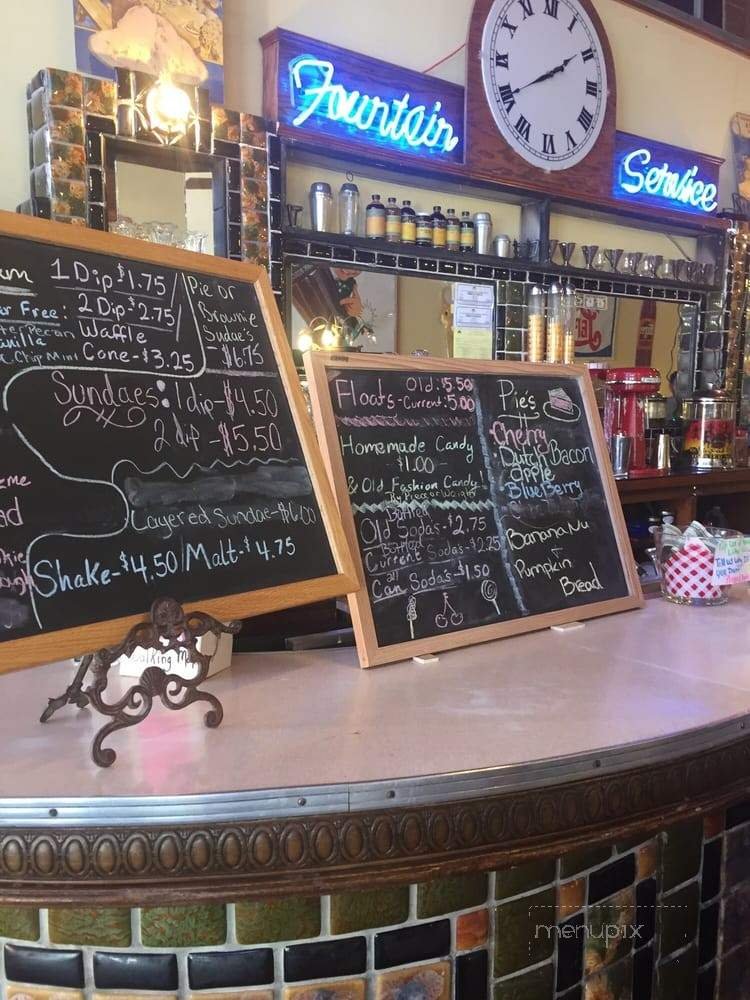 Fountain
Service
1 Dip $1.75
2 Dip $2.75
Waffle
Cone - $3.25
Free:
Chip Mint
Pie or
Brownie
Sudae's
- $6.75
Sundaes: 1 dip - $4.50
2 dip - $5.50
Layered Sundae - $6.00
Shake - $4.50 / Malt - $4.75
Floats - Old: 5.50
Current: 5.00
Homemade Candy
- $1.00 -
& Old Fashion Candy
By Piece or Weight
Bottled
Old Sodas - $2.75
Bottled
Current Sodas - $2.25
all
Can Sodas - $1.50
Pie's
Cherry
Dutch Bacon
apple
BlueBerry
Banana Nu
+
Pumpkin
Bread
menupix